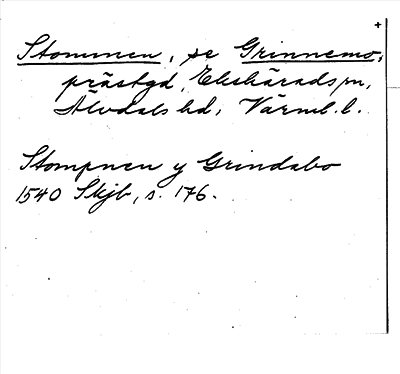 +
Stommen, se Grinnemo,
prästgd, Ekshärads sn,
Älvdals hd, Värml. l.
Stompnen y Grindabo
1540 Skjb, s. 176.